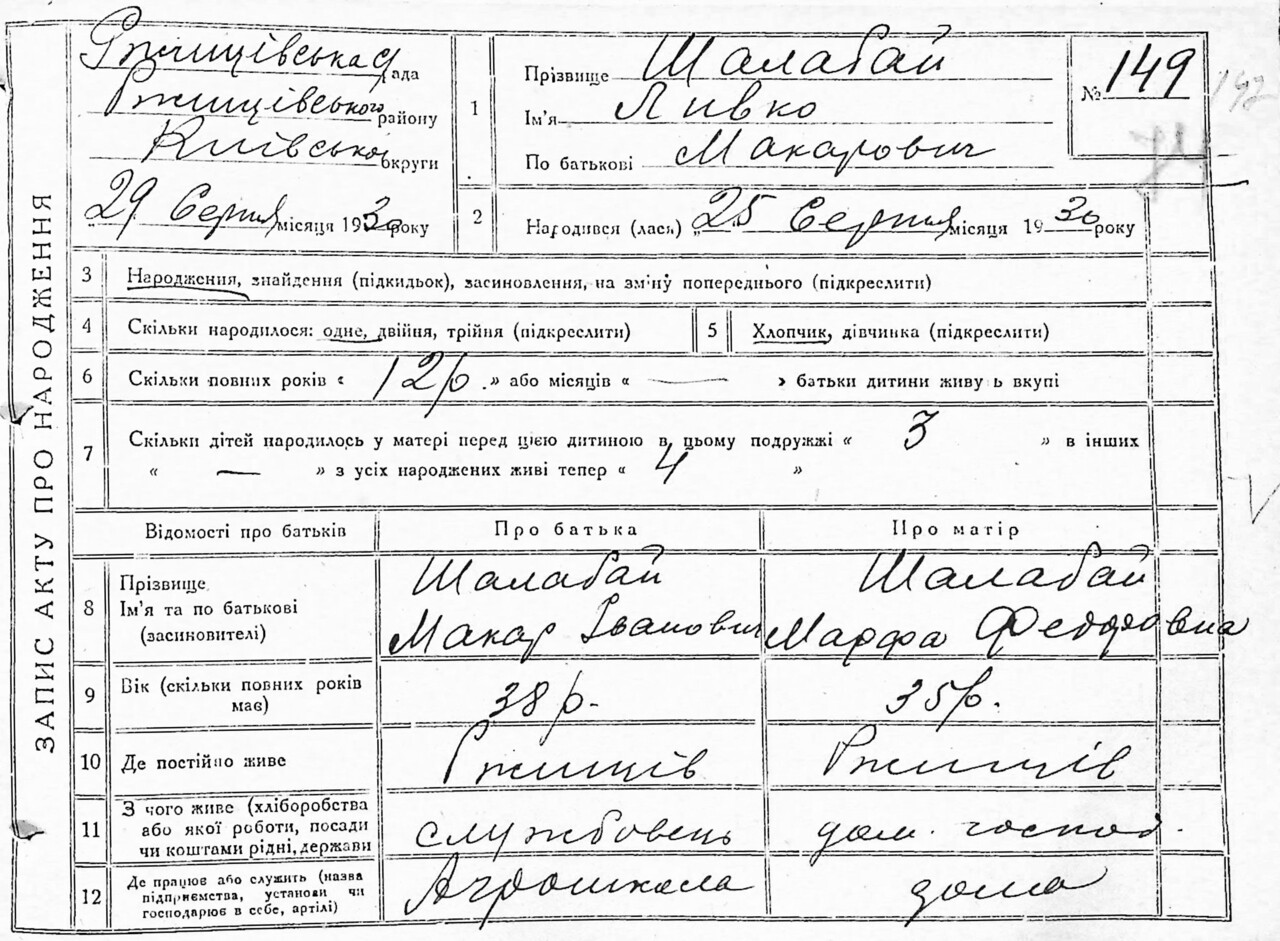 ЗАПИС АКТУ ПРО НАРОДЖЕННЯ
Ржищівська рада
Ржищівського району
Київської округи
„29„ Серпня місяця 1930 року
1
Прізвище Шалабай
Ім'я Ливко
По батькові Макарович
№ 149
2
Народився (лась) „25„ Серпня місяця 1930 року
3 Народження, знайдення (підкидьок), засиновлення, на зміну попереднього (підкреслити)
4 Скільки народилося: одне, двійня, трійня (підкреслити)
5 Хлопчик, дівчинка (підкреслити)
6 Скільки повних років « 12 р. » або місяців « — » батьки дитини живуть вкупі
7 Скільки дітей народилось у матері перед цією дитиною в цьому подружжі « 3 » в інших
« — » з усіх народжених живі тепер « 4 »
Відомості про батьків Про батька Про матір
8 Прізвище Шалабай Шалабай
Ім'я та по батькові Макар Іванович Марфа Федоровна
(засиновителі)
9 Вік (скільки повних років 38 р. 35 р.
має)
10 Де постійно живе Ржищів Ржищів
11 З чого живе (хліборобства
або якої роботи, посади службовець дом. господ.
чи коштами рідні, держави
12 Де працює або служить (назва Агрошкола дома
підприємства, установи чи
господарює в себе, артілі)